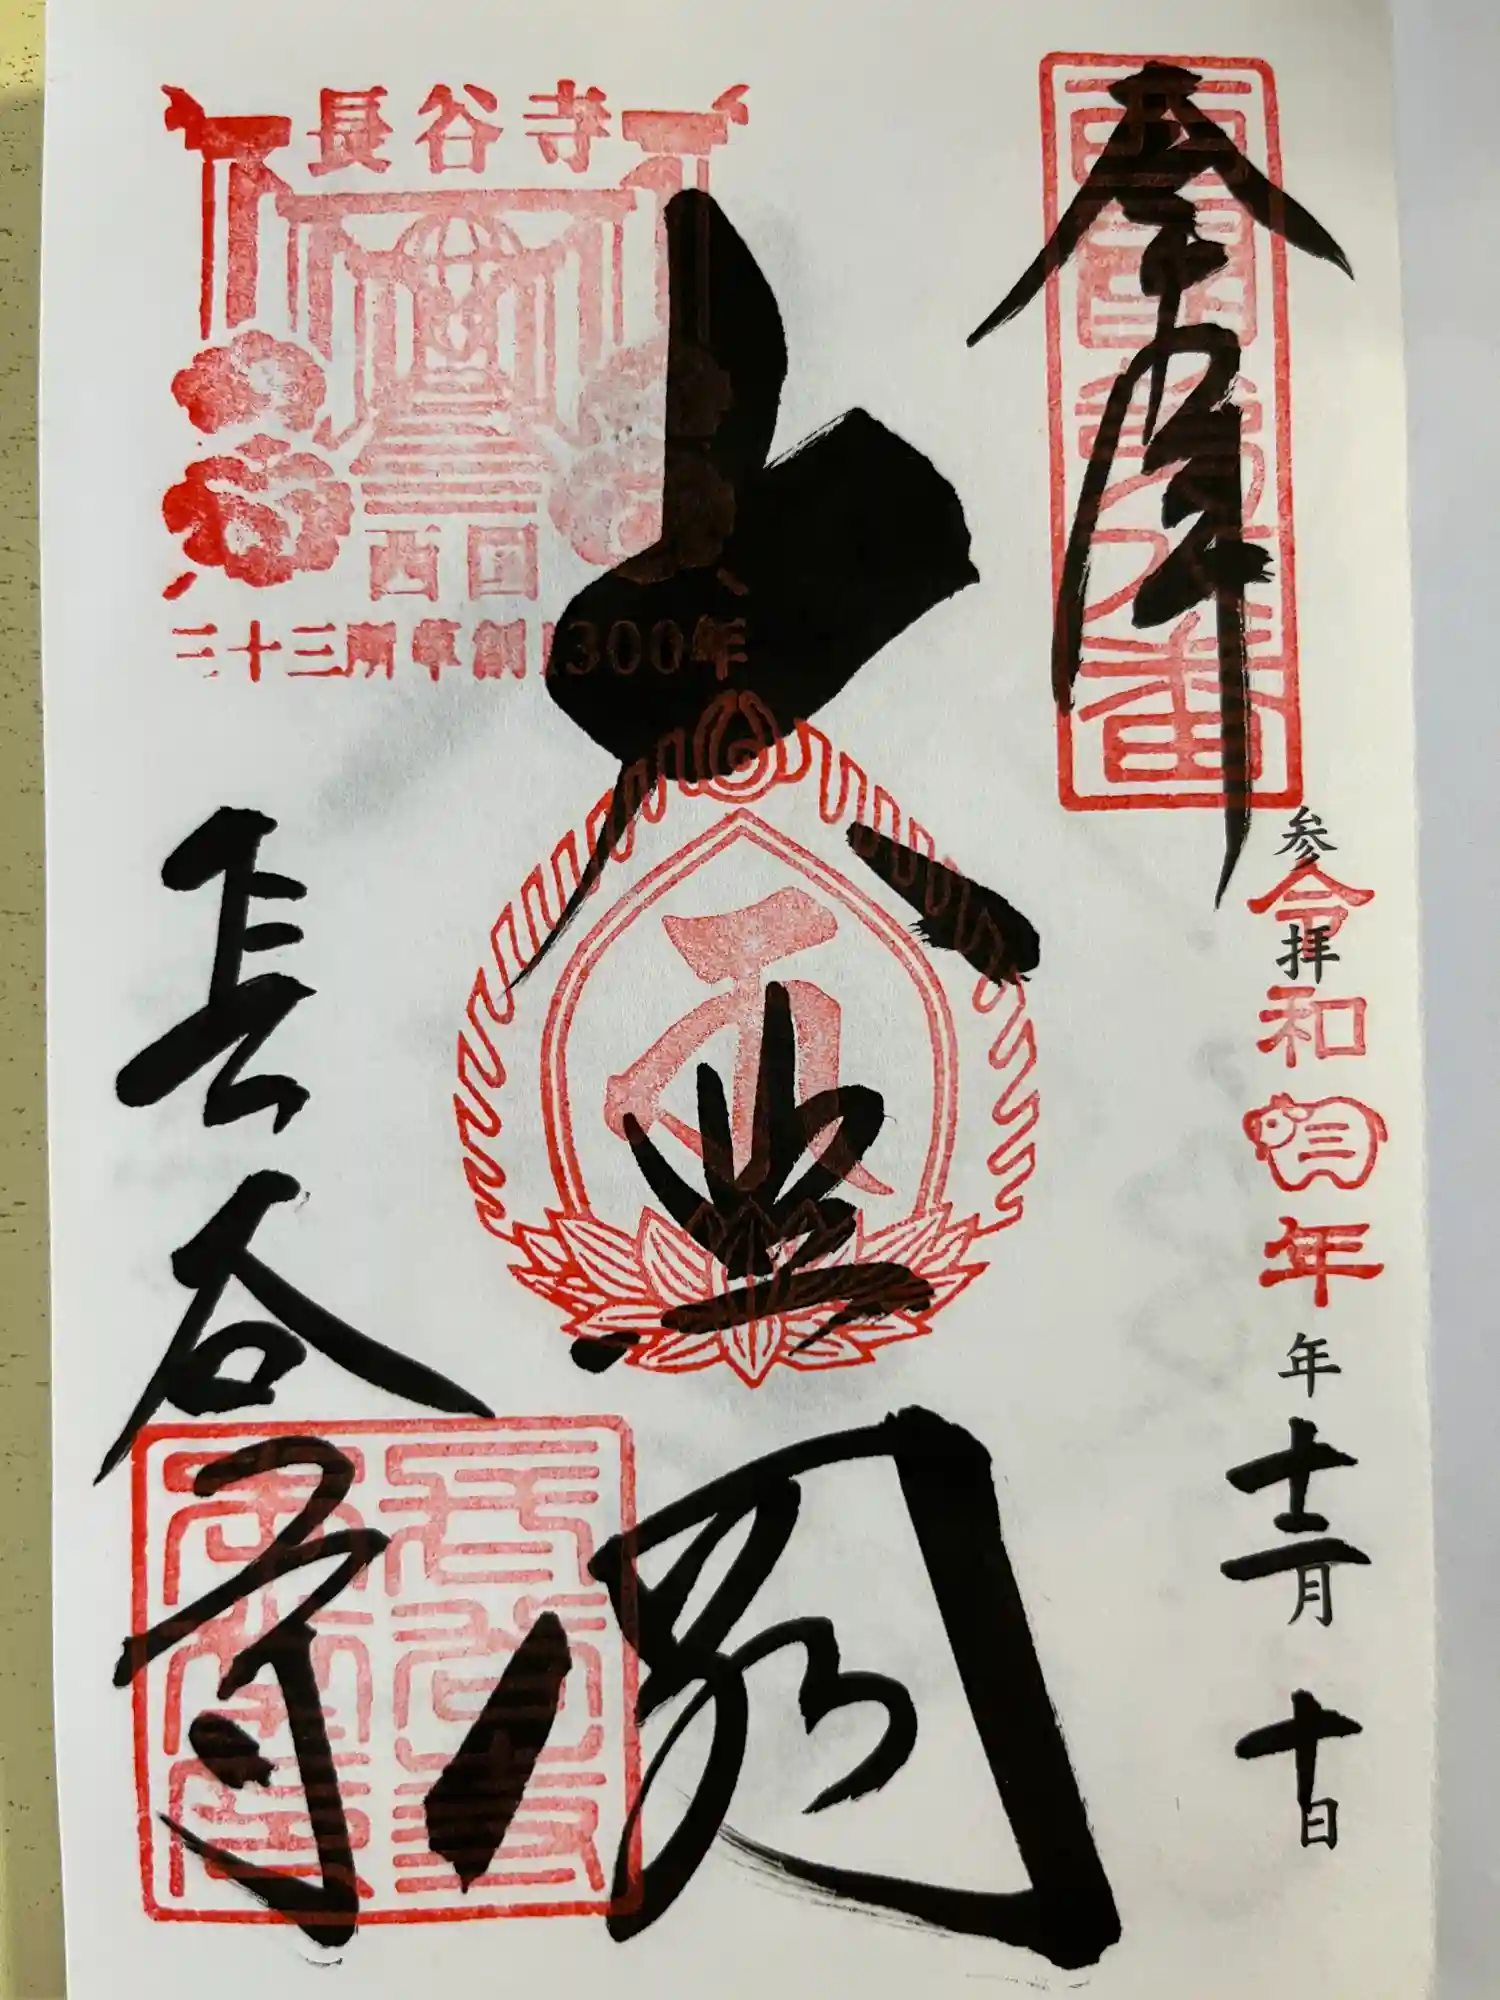 奉拝
西国第八番
参拝
令和三年
年
十二月
十日
大悲閣
長谷寺
西国
三十三所草創1300年
長谷寺